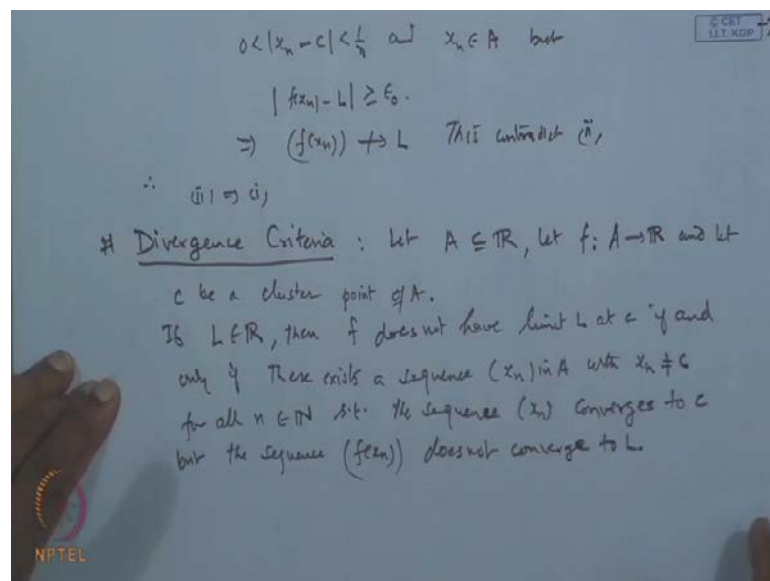 0 < |x_n - c| < 1/n and x_n ∈ A but
© CET
I.I.T. KGP
|f(x_n) - L| ≥ ε_0.
⇒ (f(x_n)) ↛ L This contradict (ii),
∴ (ii) ⇒ (i),
# Divergence Criteria : Let A ⊆ ℝ, Let f: A → ℝ and let
c be a cluster point of A.
If L ∈ ℝ, then f does not have limit L at c if and
only if There exists a sequence (x_n) in A with x_n ≠ c
for all n ∈ ℕ s.t. the sequence (x_n) converges to c
but the sequence (f(x_n)) does not converge to L.
NPTEL